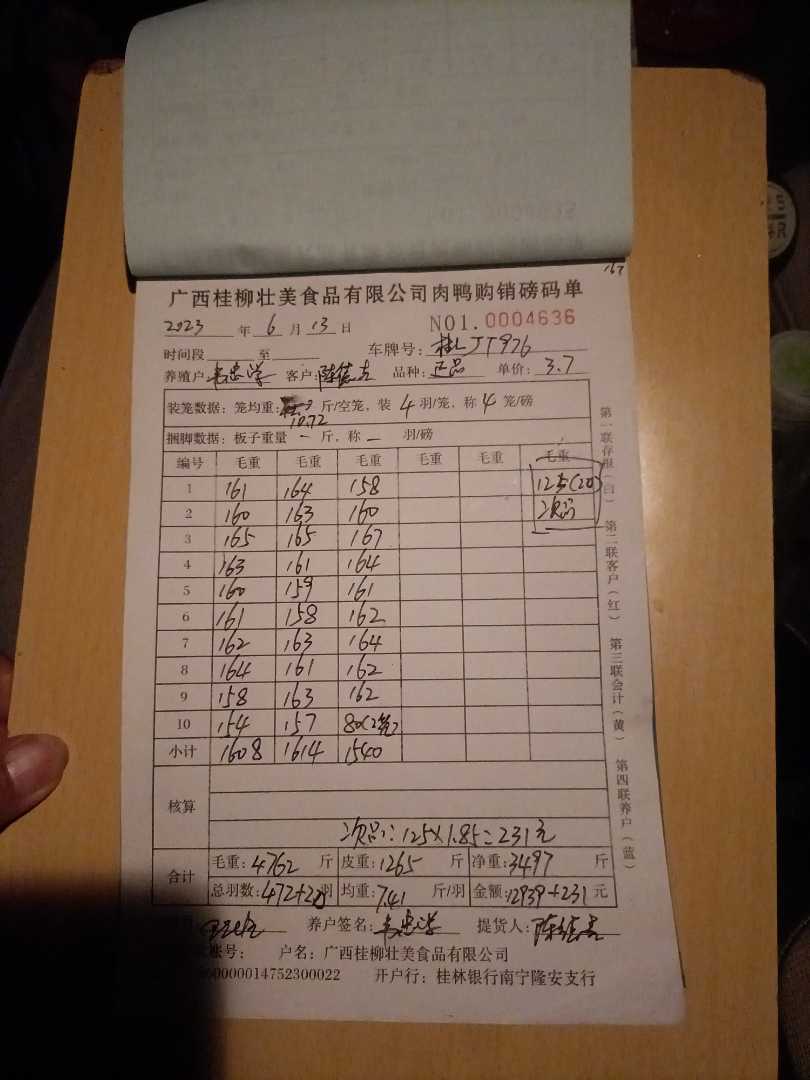 广西桂柳壮美食品有限公司肉鸭购销磅码单
2023 年 6 月 13 日 NO1.0004636
时间段 至 车牌号:
养殖户: 客户: 品种: 正品 单价: 3.7
装笼数据: 笼均重: 10.72 斤/空笼, 装 4 羽/笼, 称 4 笼/磅
捆脚数据: 板子重量 - 斤, 称 - 羽/磅
编号 毛重 毛重 毛重 毛重 毛重 毛重
1 161 164 158
2 160 163 160 次品
3 165 165 167
4 163 161 164
5 160 159 161
6 161 158 162
7 162 163 164
8 164 161 162
9 158 163 162
10 154 157 80(2笼)
小计 1608 1614 1540
核算
次品: 125×1.85=231元
合计 毛重: 4762 斤 皮重: 1265 斤 净重: 3497 斤
总羽数: 472+20羽 均重: 7.41 斤/羽 金额: 12939+231 元
养户签名: 提货人:
账号: 户名: 广西桂柳壮美食品有限公司
0000014752300022 开户行: 桂林银行南宁隆安支行
第一联存根(白) 第二联客户(红) 第三联会计(黄) 第四联养户(蓝)